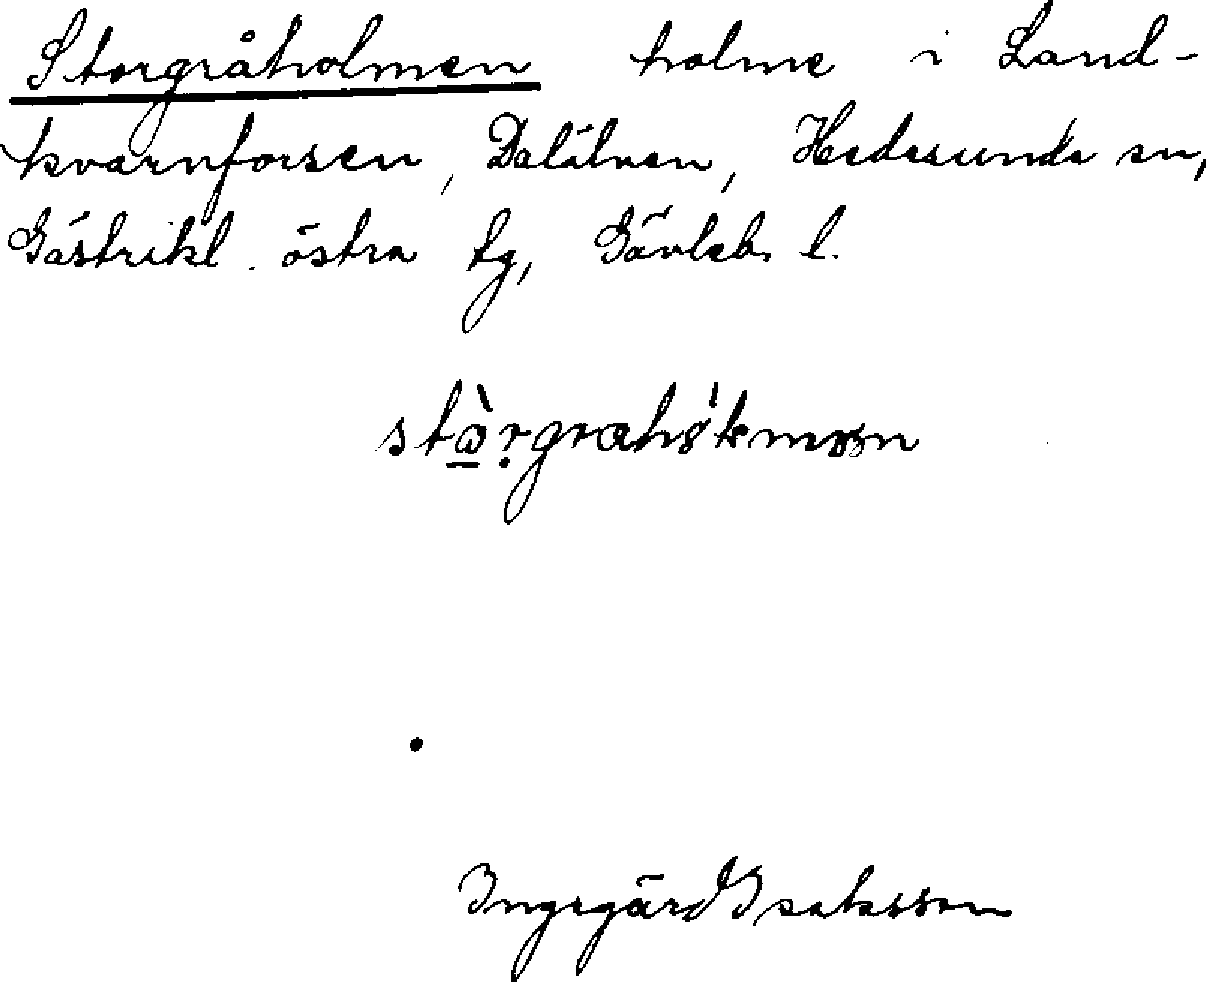 Storgråholmen holme i Land-
kvarnforsen, Dalälven, Hedesunda sn,
Gästrikl. östra tg, Gävleb. l.
Ingegärd Isaksson